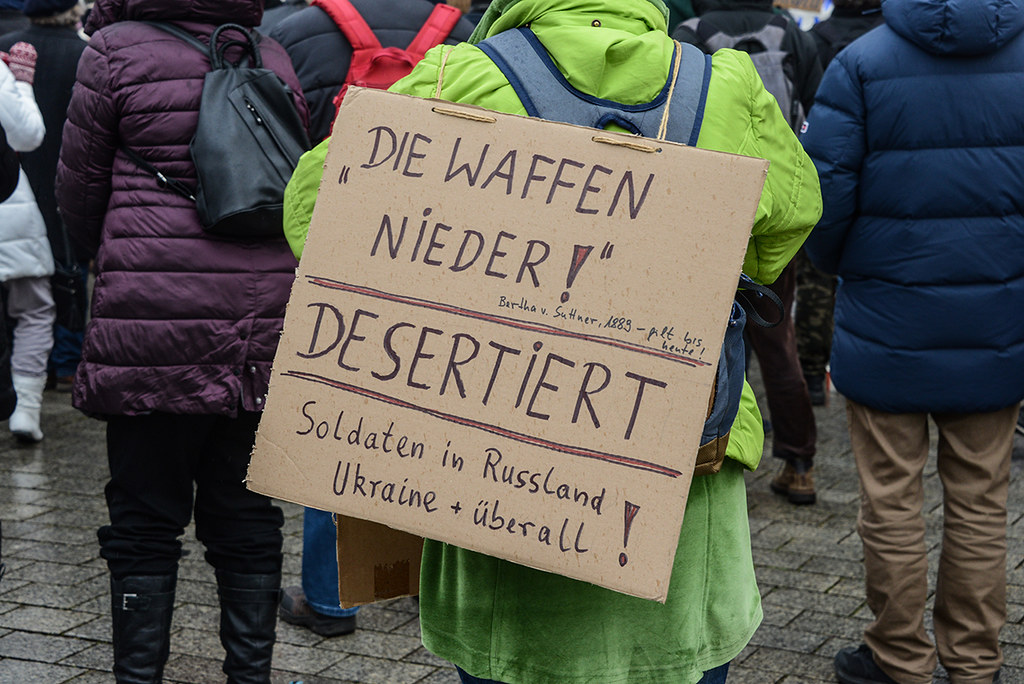 „DIE WAFFEN
NIEDER!“
Bertha v. Suttner, 1889 – gilt bis
heute!
DESERTIERT
Soldaten in Russland
Ukraine + überall !